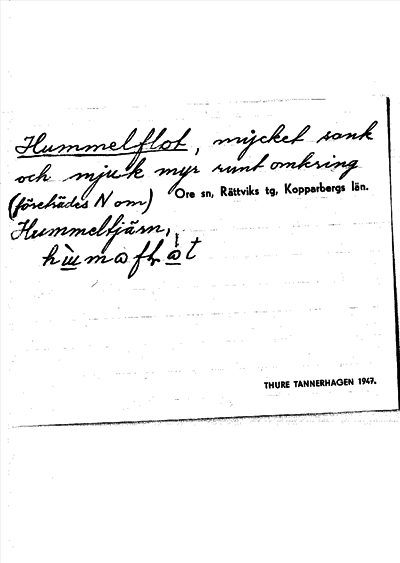 Hummelflot, mycket sank
och mjuk myr runt omkring
(företrädes N om) Ore sn, Rättviks tg, Kopparbergs län.
Hummeltjärn,
THURE TANNERHAGEN 1947.